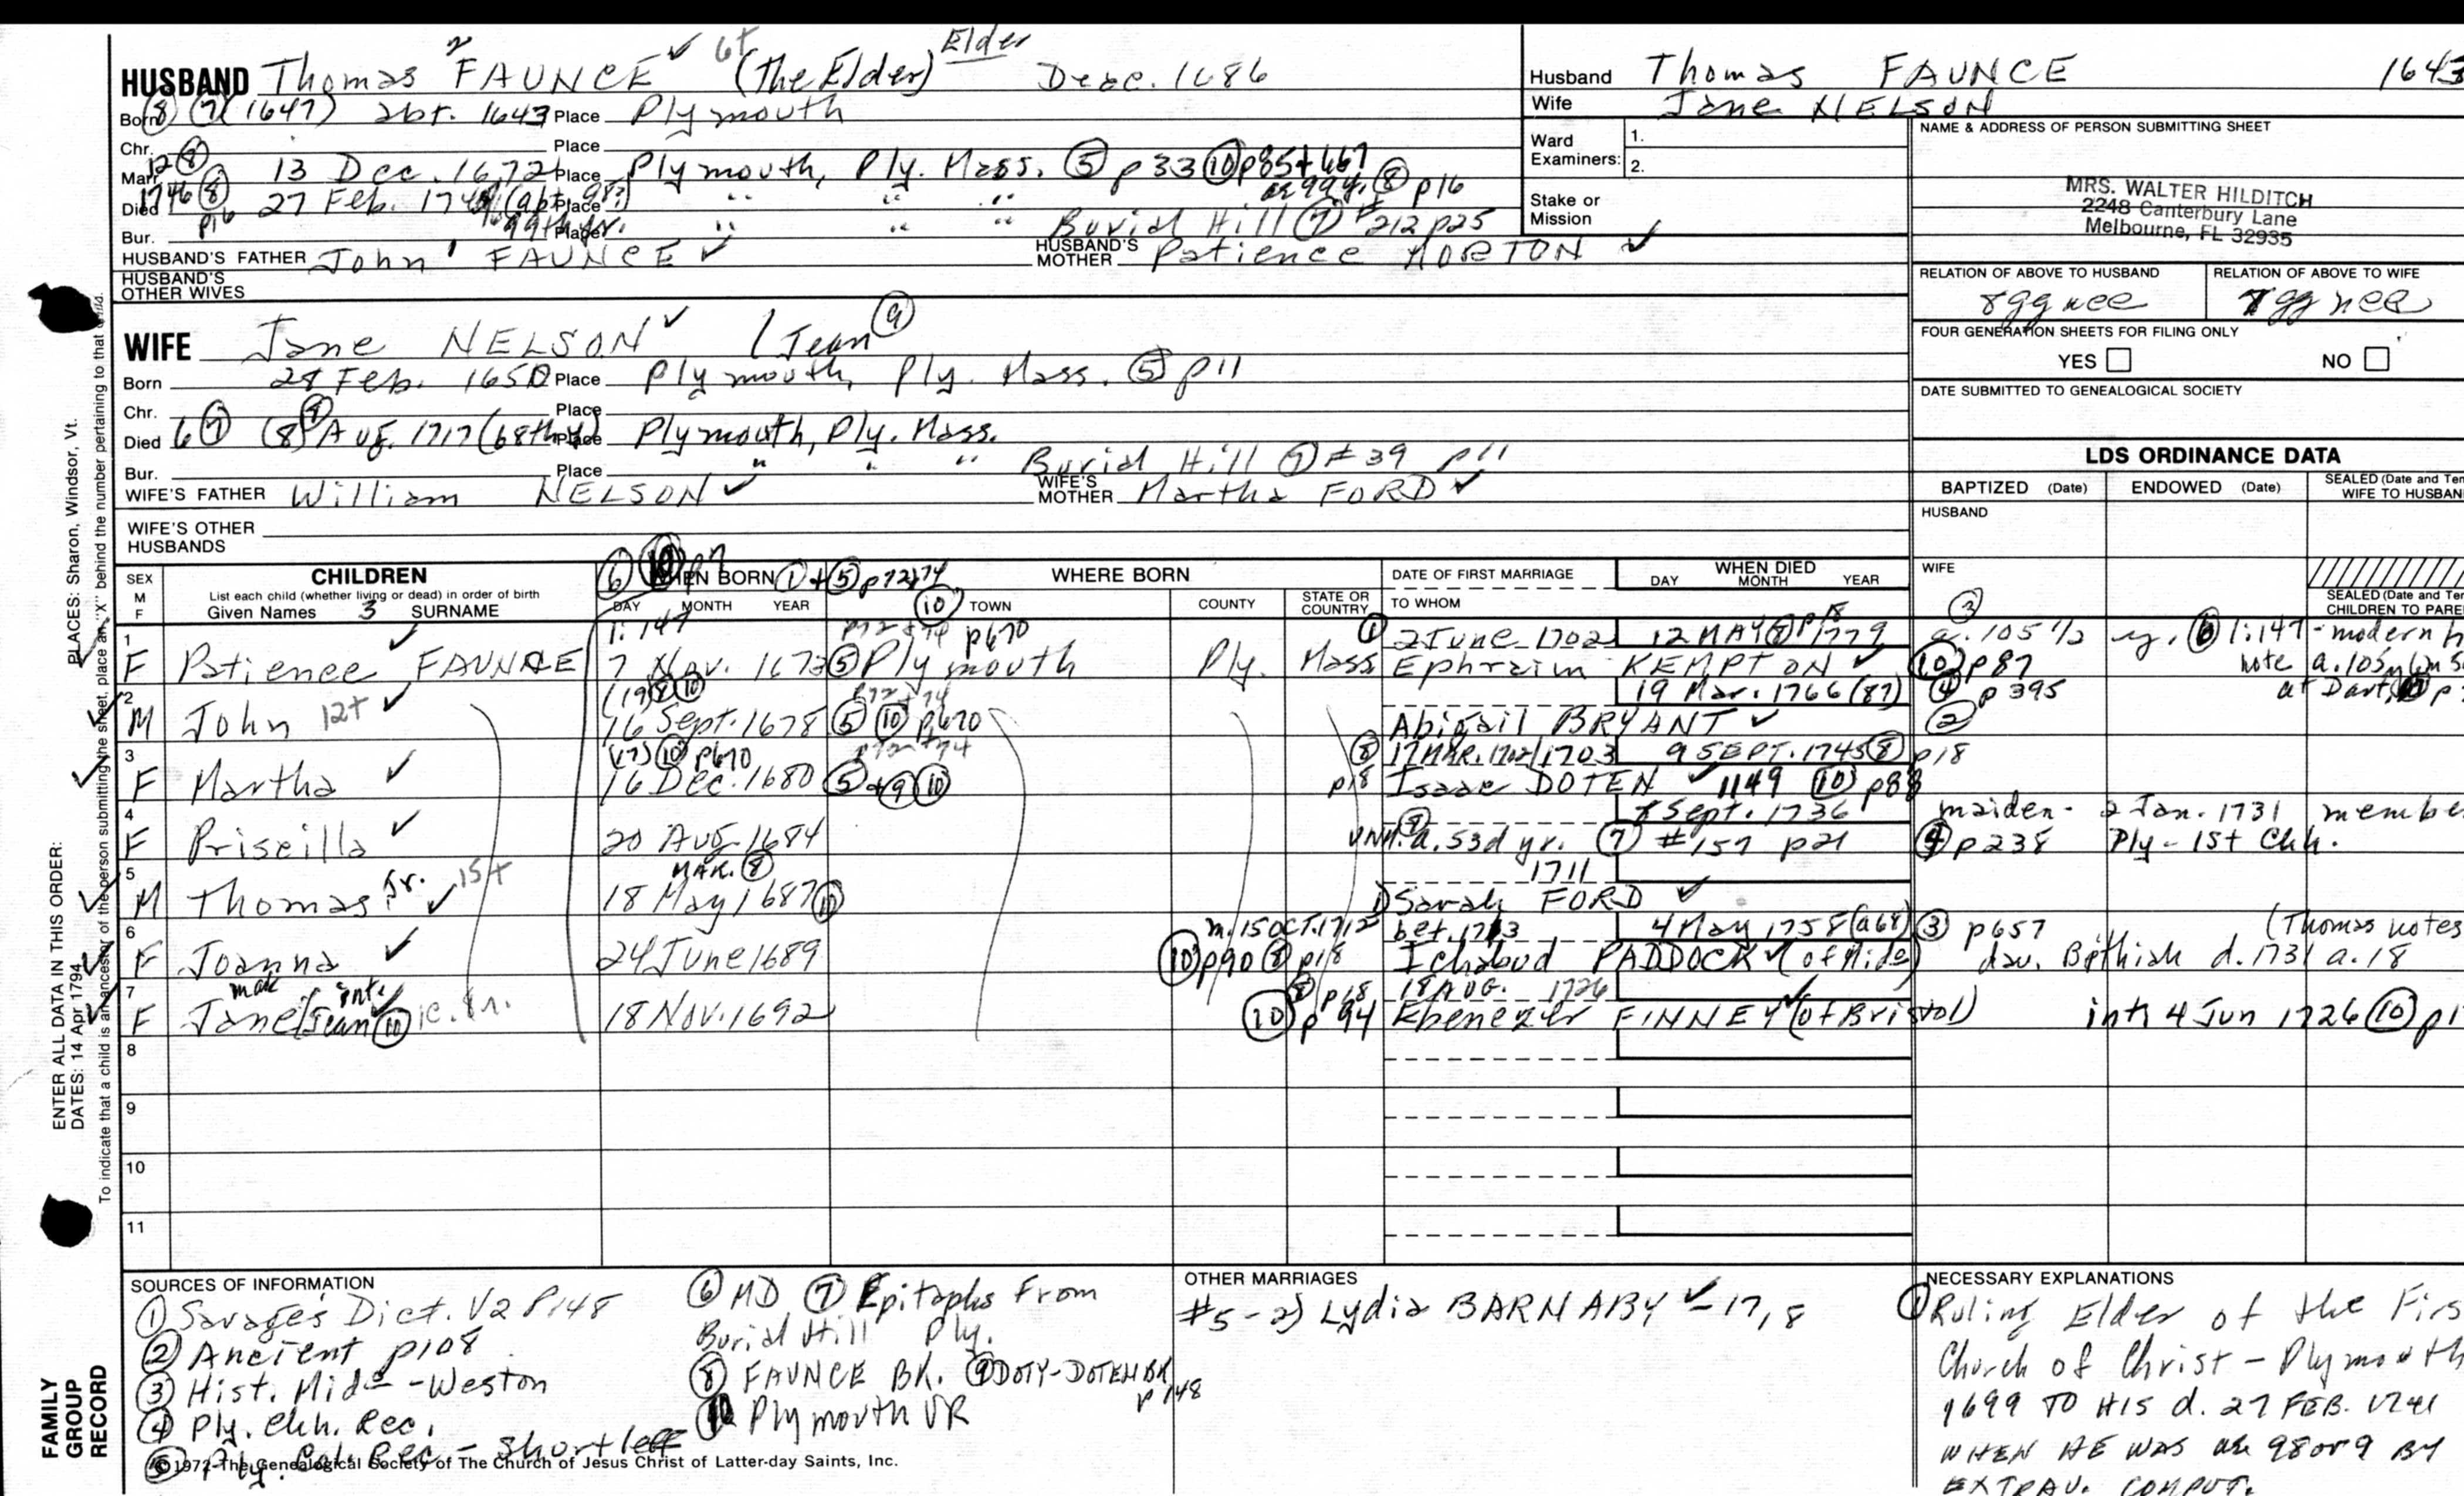 HUSBAND Thomas 2 FAUNCE ✓ 6+ (The Elder) Elder Deac. 1686
Born (8) (7) (1647) abt. 1643 Place Plymouth
Chr. Place
Marr. 12 (8) 13 Dec. 1672 Place Plymouth, Ply. Mass. (5) p33 (10) p85+667
Died 1746 (8) p16 27 Feb. Place " " " ae 99y. (8) p16
Bur. Place " " " Burial Hill (7) #212 p25
HUSBAND'S FATHER John 1 FAUNCE ✓ HUSBAND'S MOTHER Patience MORTON ✓
HUSBAND'S OTHER WIVES
WIFE Jane NELSON ✓ (Jean (9)
Born 28 Feb. 1650 Place Plymouth, Ply. Mass. (5) p11
Chr. Place
Died 6 (7) (8) Aug. 1717 (68th y) Place Plymouth, Ply. Mass.
Bur. Place " " " Burial Hill (7) #39 p11
WIFE'S FATHER William NELSON ✓ WIFE'S MOTHER Martha FORD ✓
WIFE'S OTHER HUSBANDS
Husband Thomas FAUNCE 1643
Wife Jane NELSON
Ward Examiners: 1. 2.
Stake or Mission
NAME & ADDRESS OF PERSON SUBMITTING SHEET
MRS. WALTER HILDITCH
2248 Canterbury Lane
Melbourne, FL 32935
RELATION OF ABOVE TO HUSBAND RELATION OF ABOVE TO WIFE
8gg nee 8gg nee
FOUR GENERATION SHEETS FOR FILING ONLY
YES NO
DATE SUBMITTED TO GENEALOGICAL SOCIETY
LDS ORDINANCE DATA
BAPTIZED (Date) ENDOWED (Date) SEALED (Date and Tem WIFE TO HUSBAN
HUSBAND
WIFE
SEALED (Date and Tem CHILDREN TO PARE
SEX M F
CHILDREN
List each child (whether living or dead) in order of birth
Given Names 3 SURNAME
(6) (10) p7 WHEN BORN (1) + (5) p72+74 WHERE BORN
DAY MONTH YEAR (10) TOWN COUNTY STATE OR COUNTRY
DATE OF FIRST MARRIAGE
TO WHOM
WHEN DIED
DAY MONTH YEAR
1:147 p72+74 p670 (1) 2 June 1702 12 MAY (8) p18 1779 (3) a. 105 1/2 y. (6) 1:147 - modern
1 F Patience FAUNCE ✓ 7 Nov. 1673 (5) Plymouth Ply. Mass Ephraim KEMPTON ✓ (10) p87 note a. 105y
(19) (8) (10) p72+74 19 Mar. 1766 (87) (4) p395 at Dart.
2 M John 12+ ✓ 16 Sept. 1678 (5) (10) p670 Abigail BRYANT ✓ (2)
(17) (10) p670 p72+74 (8) 17 MAR. 1702/1703 9 SEPT. 1745 (8) p18
3 F Martha ✓ 16 Dec. 1680 (5)+(9) (10) p18 Isaac DOTEN ✓ 1149 (10) p88
8 Sept. 1736 maiden - 2 Jan. 1731 membe
4 F Priscilla ✓ 20 Aug. 1684 UNM. (8) a. 53d yr. (7) #157 p21 (4) p238 Ply - 1st Chh.
MAR. (8) 1711
5 M Thomas Jr. ✓ 15+ 18 May 1687 (10) 1) Sarah FORD ✓
m. 15 OCT. 1712 bet. 1713 4 May 1758 (a68) (3) p657 (Thomas notes
6 F Joanna ✓ 24 June 1689 (10) p90 (8) p18 Ichabod PADDOCK ✓ (of Mid.) dau. Bethiah d. 1731 a. 18
mar int. (8) p18 18 AUG. 1726
7 F Jane/Jean (10) 18 Nov. 1692 (10) p94 Ebenezer FINNEY ✓ (of Bristol) int. 4 Jun 1726 (10)
8
9
10
11
SOURCES OF INFORMATION
(1) Savage's Dict. V2 P148
(2) Ancient p108
(3) Hist. Mid. - Weston
(4) Ply. Chh. Rec.
(5) Ply. Col. Rec - Shortleff
(6) MD (7) Epitaphs From
Burial Hill Ply.
(8) FAUNCE BK. (9) DOTY-DOTEN BK p148
(10) Plymouth VR
©1972 The Genealogical Society of The Church of Jesus Christ of Latter-day Saints, Inc.
OTHER MARRIAGES
#5 - 2) Lydia BARNABY ✓ - 17, 8
NECESSARY EXPLANATIONS
Ruling Elder of the Firs
Church of Christ - Plymouth
1699 TO HIS d. 27 FEB. 1741
WHEN HE WAS ae 98 or 9 BY
EXTRAV. COMPUT.
ENTER ALL DATA IN THIS ORDER:
DATES: 14 Apr 1794
PLACES: Sharon, Windsor, Vt.
To indicate that a child is an ancestor of the person submitting the sheet, place an "X" behind the number pertaining to that child.
FAMILY GROUP RECORD